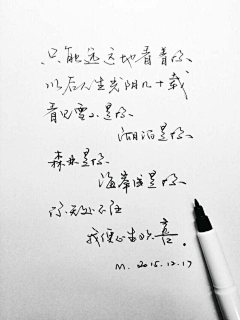 只能远远地看着你、
以后人生光阴几十载
看见雪山是你、
湖泊是你、
森林是你、
海岸线是你、
你无处不在
我便心生欢喜。
M. 2015.12.17